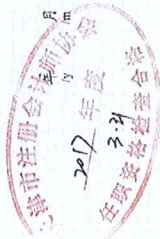 上海市注册会计师协会
2017 年度
3.21
任职资格检查合格
年
/y
月
/m